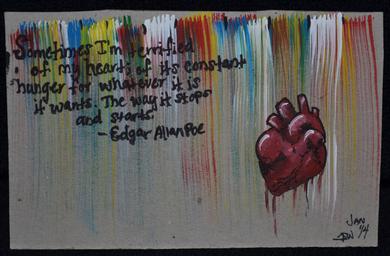 Sometimes I'm terrified
of my heart; of its constant
hunger for whatever it is
it wants. The way it stops
and starts.
- Edgar Allan Poe
JAN
14